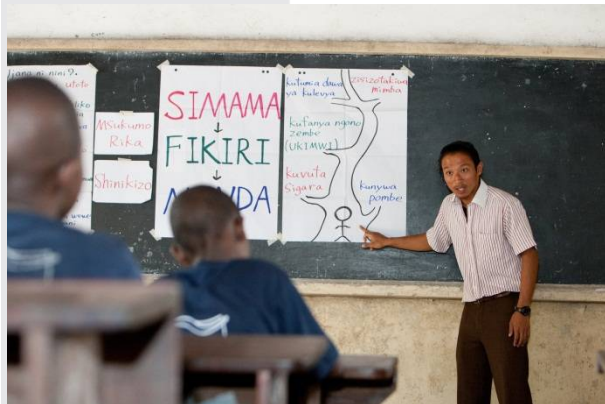 jiana ni nini?
Msukumo
Rika
Shinikizo
SIMAMA
↓
FIKIRI
↓
kutumia dawa
ya kulevya
zisizotakiwa
mimba
kufanya ngono
zembe
(UKIMWI)
kuvuta
Sigara
kunywa
pombe